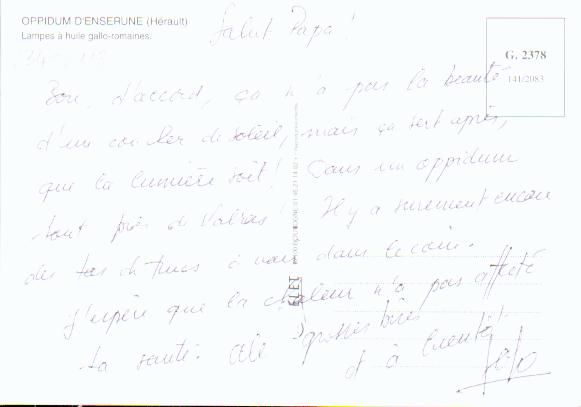 OPPIDUM D'ENSERUNE (Hérault)
Lampes à huile gallo-romaines.
Salut Papa!
G. 2378
141/2083
Bon, d'accord, ça n'a pas la beauté
d'un coucher de soleil, mais ça sert après,
que la lumière soit! Dans un oppidum
tout près de Valras! Il y a surement encore
des tas de trucs à voir dans le coin.
J'espère que la chaleur n'a pas affecté
ta santé. Grosses bises
et à bientôt